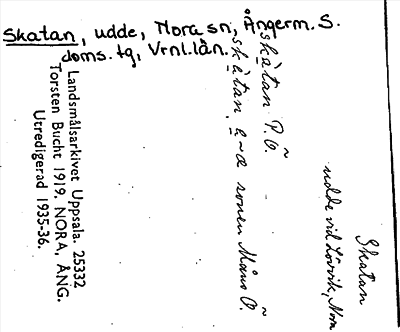 Skatan, udde, Nora sn, Ångerm. S.
doms. tg, Vrnl. län.
skàtan P.Ö.
skàtan
sonen Måns Ö.
Landsmålsarkivet Uppsala. 25332
Torsten Bucht 1919. NORA, ÅNG.
Utredigerad 1935-36.
Skatan
udde vid Lövvik, Nora